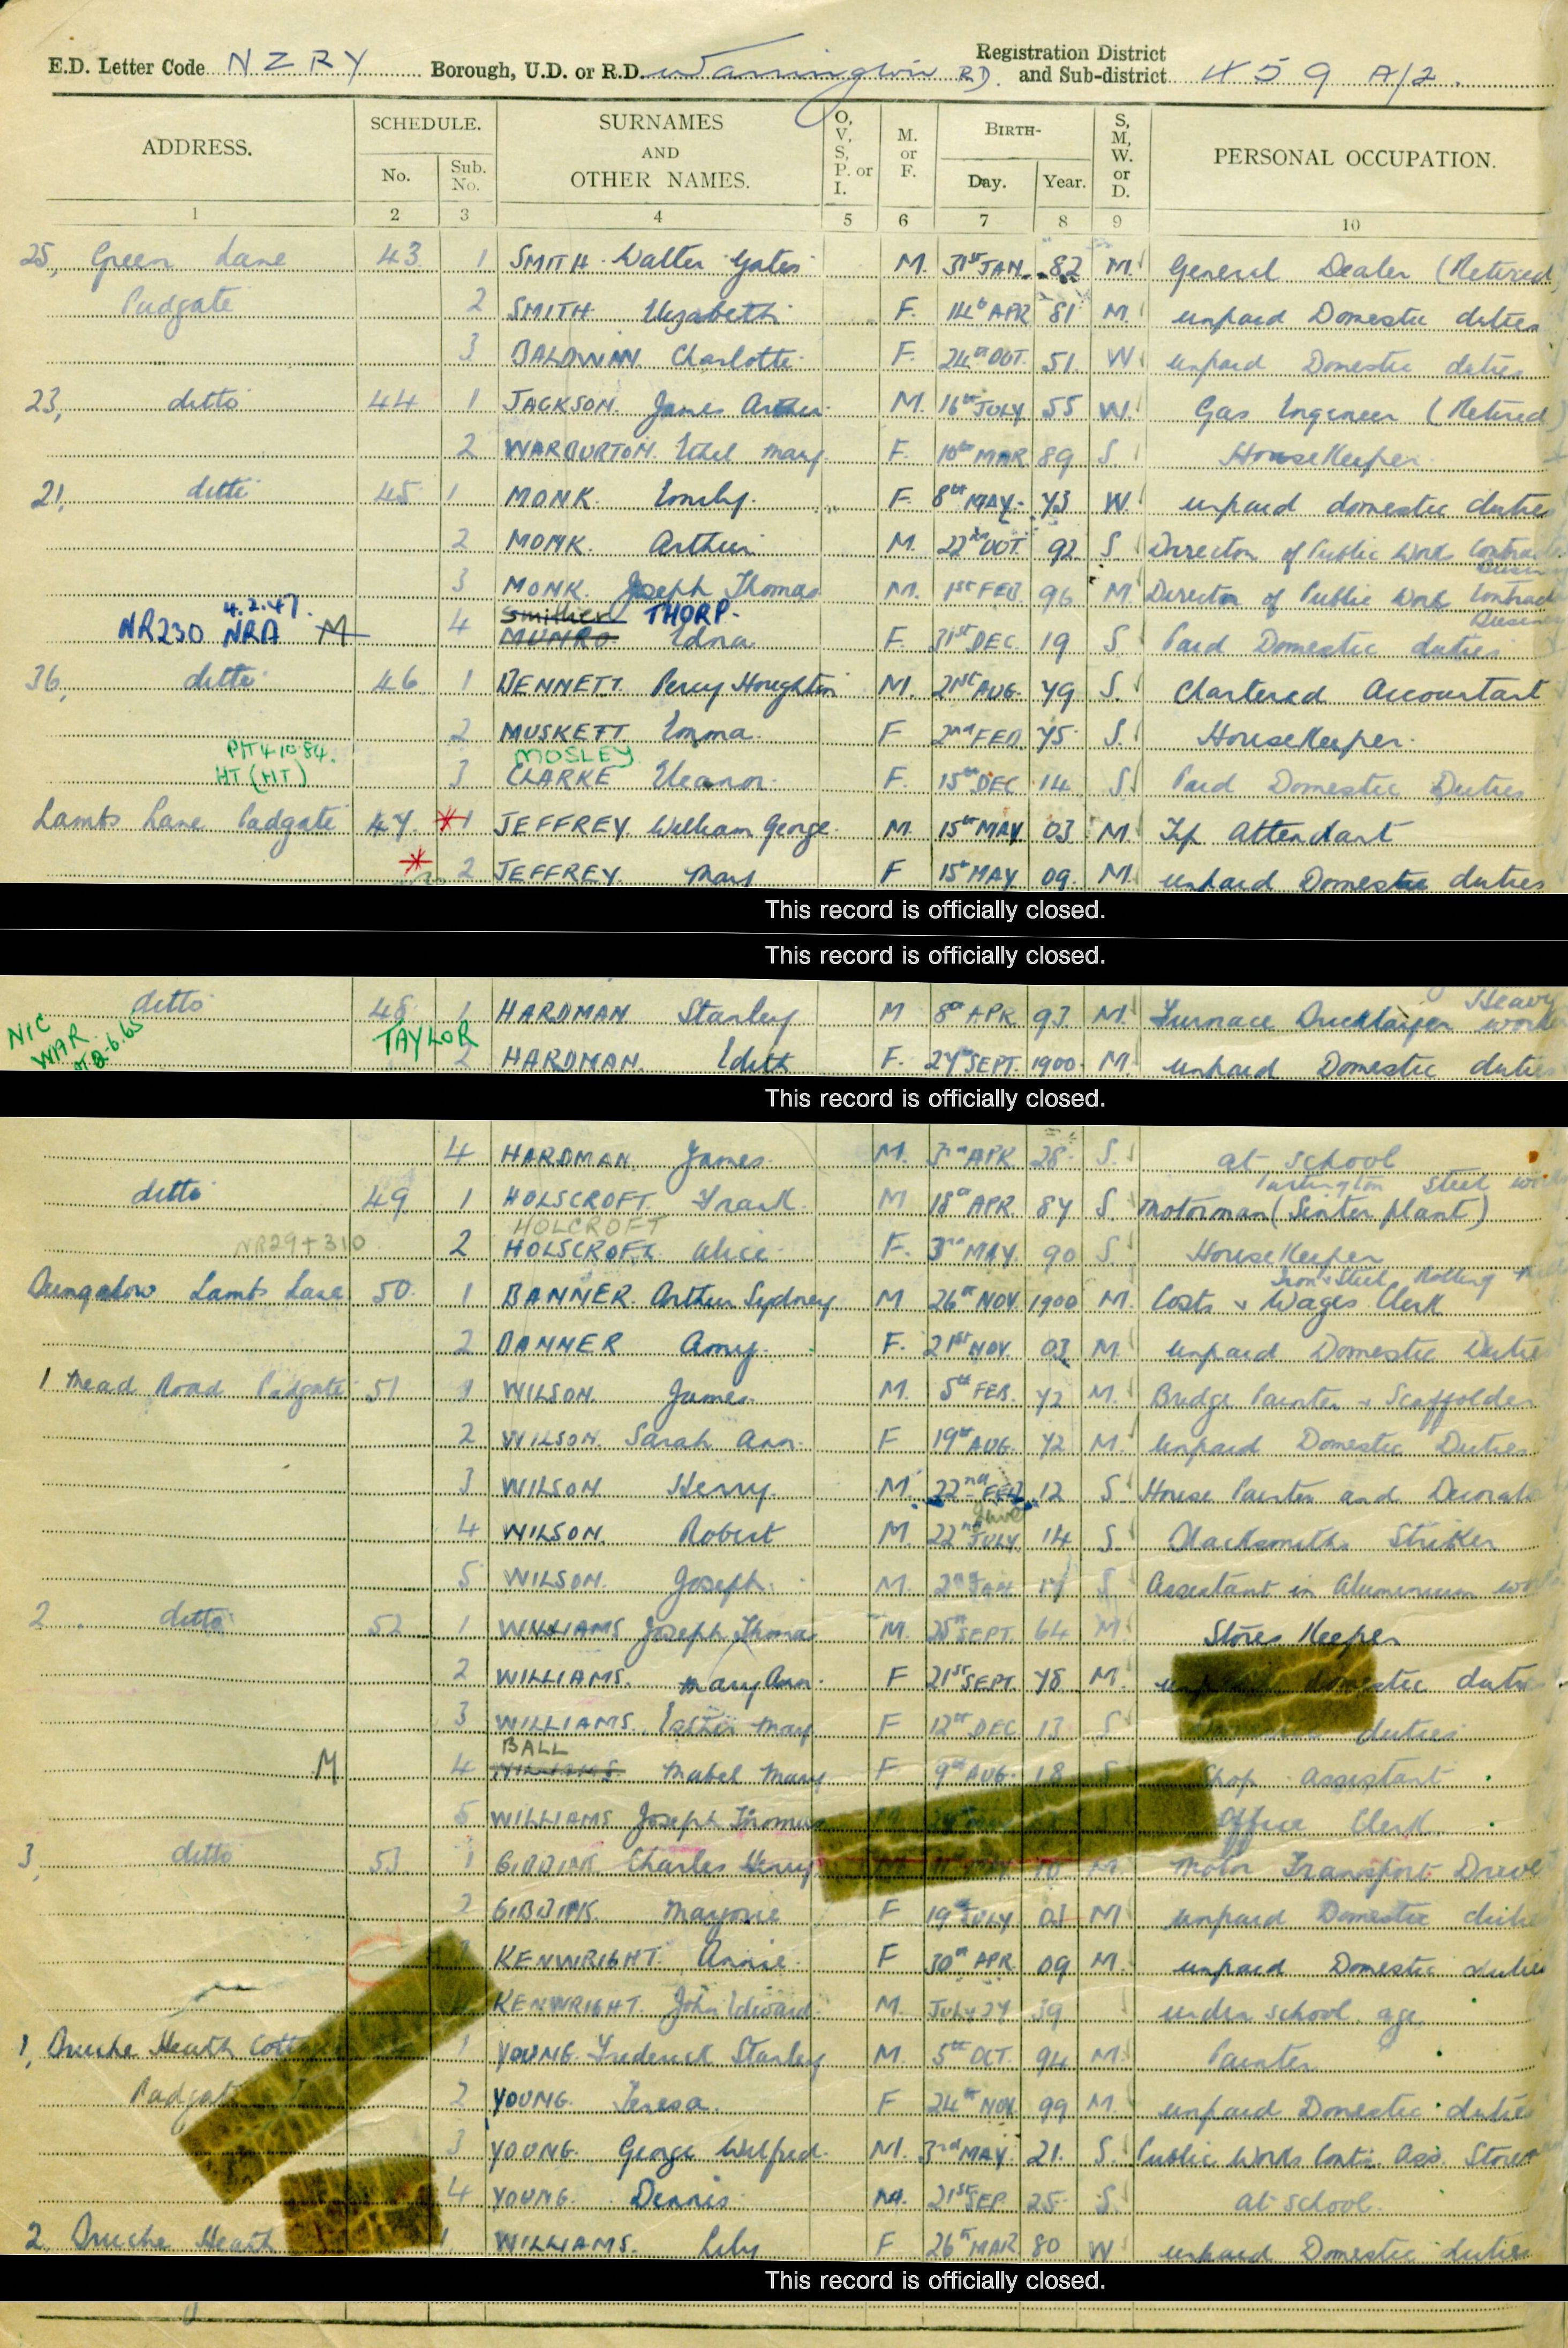 E.D. Letter Code NZRY Borough, U.D. or R.D. Warrington RD. Registration District and Sub-district 459 A/2.
ADDRESS. SCHEDULE. No. Sub. No. SURNAMES AND OTHER NAMES. O, V, S, P. or I. M. or F. BIRTH- Day. Year. S, M, W. or D. PERSONAL OCCUPATION.
1 2 3 4 5 6 7 8 9 10
25, Green Lane 43 1 SMITH Walter Yates M. 31st JAN. 82 M. General Dealer (Retired
Padgate 2 SMITH Elizabeth F. 14th APR 81 M. unpaid Domestic duties
3 BALDWIN Charlotte F. 24th OCT. 51 W unpaid Domestic duties
23, ditto 44 1 JACKSON. James M. 16th JULY 55 W. Gas Engineer (Retired)
2 WARBURTON. Ethel Mary F. 10th MAR 89 S. HouseKeeper
21, ditto 45 1 MONK. Emily. F. 8th MAY. 73 W. unpaid domestic duties
2 MONK. Arthur M. 22nd OCT. 92 S Director of Public Work Contract
3 MONK. Joseph Thomas M. 1st FEB 96 M. Director of Public Work Contract
4.2.47. Smither THORP.
NR230 NRA M 4 MUNRO Edna F. 31st DEC. 19 S. Paid Domestic duties
36, ditto 46 1 BENNETT Percy Houghton M. 2nd AUG. 79 S. Chartered Accountant
2 MUSKETT Emma. F 2nd FEB 75 S. HouseKeeper.
MOSLEY
HT.(HT.) 3 CLARKE Eleanor. F. 15th DEC 14 S Paid Domestic Duties
Lambs Lane Padgate 47. 1 JEFFREY William George. M. 15th MAY 03 M. Attendant
2 JEFFREY. Mary F 15th MAY 09. M. unpaid Domestic duties
This record is officially closed.
This record is officially closed.
ditto 48 1 HARDMAN Stanley M 8th APR 93 M. Furnace Bricklayer Heavy worker
NIC WAR TAYLOR 2 HARDMAN. Edith F. 27th SEPT. 1900 M. unpaid Domestic duties
This record is officially closed.
4 HARDMAN. James. M. 3rd APR 28 S. at school
ditto 49 1 HOLSCROFT. Frank. M 18th APR 87 S. Motorman (Sinter plant) Partington Steel works
HOLCROFT
NR29+310 2 HOLSCROFT. Alice F. 3rd MAY. 90 S. HouseKeeper
Bungalow Lambs Lane 50. 1 BANNER. Arthur Sydney M 26th NOV 1900 M. Costs & Wages Clerk Iron & Steel Rolling
2 BANNER Amy. F. 21st NOV 03 M. unpaid Domestic Duties
1 Mead Road Padgate 51 1 WILSON. James. M. 5th FEB. 72 M. Bridge Painter & Scaffolder
2 WILSON. Sarah Ann. F 19th AUG. 72 M. unpaid Domestic Duties
3 WILSON Henry. M. 22nd FEB 12 S House Painter and Decorator
June
4 WILSON. Robert M. 22nd JULY 14 S Blacksmiths Striker
5 WILSON. Joseph. M. 2nd JAN 17 S Assistant in Aluminium
2 ditto 52 1 WILLIAMS Joseph Thomas M. 25th SEPT. 64 M Stores Keeper
2 WILLIAMS. Mary Ann. F 21st SEPT. 78 M. domestic duties
3 WILLIAMS. Mary F 12th DEC 13 S duties
BALL
M 4 WILLIAMS. Mabel Mary F 9th AUG 18 S Shop Assistant
5 WILLIAMS Joseph Thomas Office Clerk
3, ditto 53 1 Charles Henry M. Motor Transport Driver
2 Marjorie F 19th JULY 03 M unpaid Domestic duties
KENWRIGHT. Annie. F 30th APR 09 M. unpaid Domestic duties
KENWRIGHT John Edward. M. JULY 27 39 under school age
1, Bruche Heath 1 YOUNG. Frederick Stanley M. 5th OCT. 94 M. Painter
Padgate 2 YOUNG. Teresa. F 24th NOV 99 M. unpaid Domestic duties
3 YOUNG. George Wilfred. M. 3rd MAY. 21. S. Public Works Contr. Ass. Store
4 YOUNG. Dennis. M. 21st SEP 25 S. at school.
2, Bruche Heath 1. WILLIAMS. Lily F 26th MAR 80 W unpaid Domestic duties
This record is officially closed.